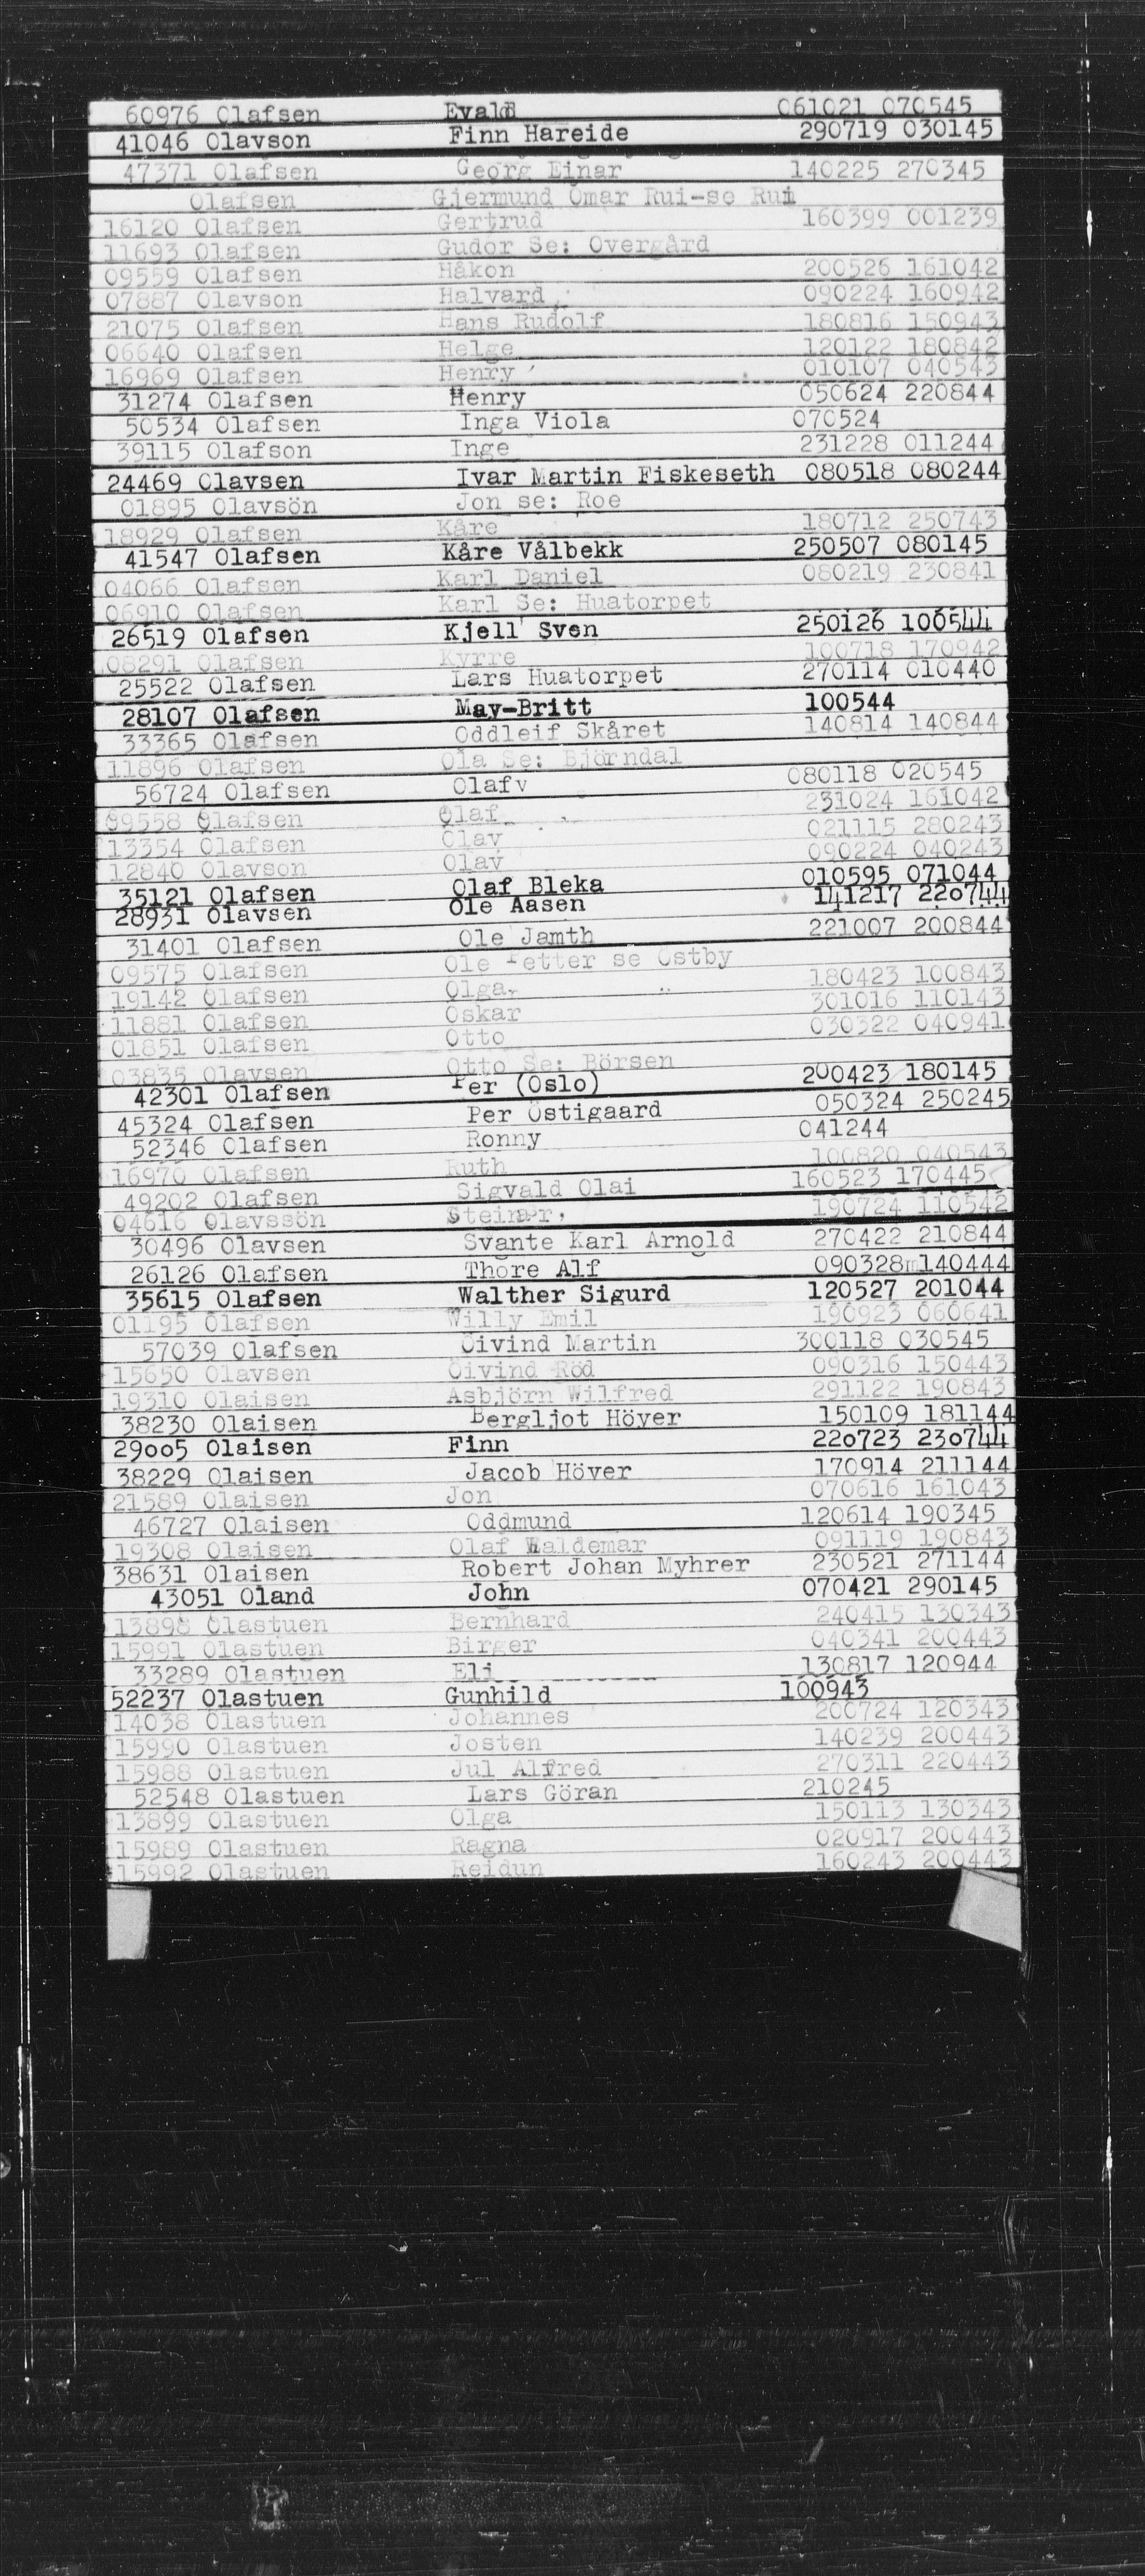 60976 Olafsen Evald 061021 070545
41046 Olavson Finn Hareide 290719 030145
47371 Olafsen Georg Einar 140225 270345
Olafsen Gjermund Omar Rui-se Rui
16120 Olafsen Gertrud 160399 001239
11693 Olafsen Gudor Se: Overgård
09559 Olafsen Håkon 200526 161042
07887 Olavson Halvard 090224 160942
21075 Olafsen Hans Rudolf 180816 150943
06640 Olafsen Helge 120122 180842
16969 Olafsen Henry 010107 040543
31274 Olafsen Henry 050624 220844
50534 Olafsen Inga Viola 070524
39115 Olafson Inge 231228 011244
24469 Olavsen Ivar Martin Fiskeseth 080518 080244
01895 Olavsön Jon se: Roe
18929 Olafsen Kåre 180712 250743
41547 Olafsen Kåre Vålbekk 250507 080145
04066 Olafsen Karl Daniel 080219 230841
06910 Olafsen Karl Se: Huatorpet
26519 Olafsen Kjell Sven 250126 100544
08291 Olafsen Kyrre 100718 170942
25522 Olafsen Lars Huatorpet 270114 010440
28107 Olafsen May-Britt 100544
33365 Olafsen Oddleif Skåret 140814 140844
11896 Olafsen Ola Se: Björndal
56724 Olafsen Olafv 080118 020545
09558 Olafsen Olaf 231024 161042
13354 Olafsen Olav 021115 280243
12840 Olavson Olav 090224 040243
35121 Olafsen Olaf Bleka 010595 071044
28931 Olavsen Ole Aasen 141217 220744
31401 Olafsen Ole Jamth 221007 200844
09575 Olafsen Ole Petter se Ostby
19142 Olafsen Olga 180423 100843
11881 Olafsen Oskar 301016 110143
01851 Olafsen Otto 030322 040941
03835 Olavsen Otto Se: Börsen
42301 Olafsen Per (Oslo) 200423 180145
45324 Olafsen Per Östigaard 050324 250245
52346 Olafsen Ronny 041244
16970 Olafsen Ruth 100820 040543
49202 Olafsen Sigvald Olai 160523 170445
04616 Olavssön Steinar 190724 110542
30496 Olavsen Svante Karl Arnold 270422 210844
26126 Olafsen Thore Alf 090328m140444
35615 Olafsen Walther Sigurd 120527 201044
01195 Olafsen Willy Emil 190923 060641
57039 Olafsen Öivind Martin 300118 030545
15650 Olavsen Öivind Röd 090316 150443
19310 Olaisen Asbjörn Wilfred 291122 190843
38230 Olaisen Bergljot Höyer 150109 181144
29005 Olaisen Finn 220723 230744
38229 Olaisen Jacob Höver 170914 211144
21589 Olaisen Jon 070616 161043
46727 Olaisen Oddmund 120614 190345
19308 Olaisen Olaf Waldemar 091119 190843
38631 Olaisen Robert Johan Myhrer 230521 271144
43051 Oland John 070421 290145
13898 Olastuen Bernhard 240415 130343
15991 Olastuen Birger 040341 200443
33289 Olastuen Eli 130817 120944
52237 Olastuen Gunhild 100943
14038 Olastuen Johannes 200724 120343
15990 Olastuen Josten 140239 200443
15988 Olastuen Jul Alfred 270311 220443
52548 Olastuen Lars Göran 210245
13899 Olastuen Olga 150113 130343
15989 Olastuen Ragna 020917 200443
15992 Olastuen Reidun 160243 200443